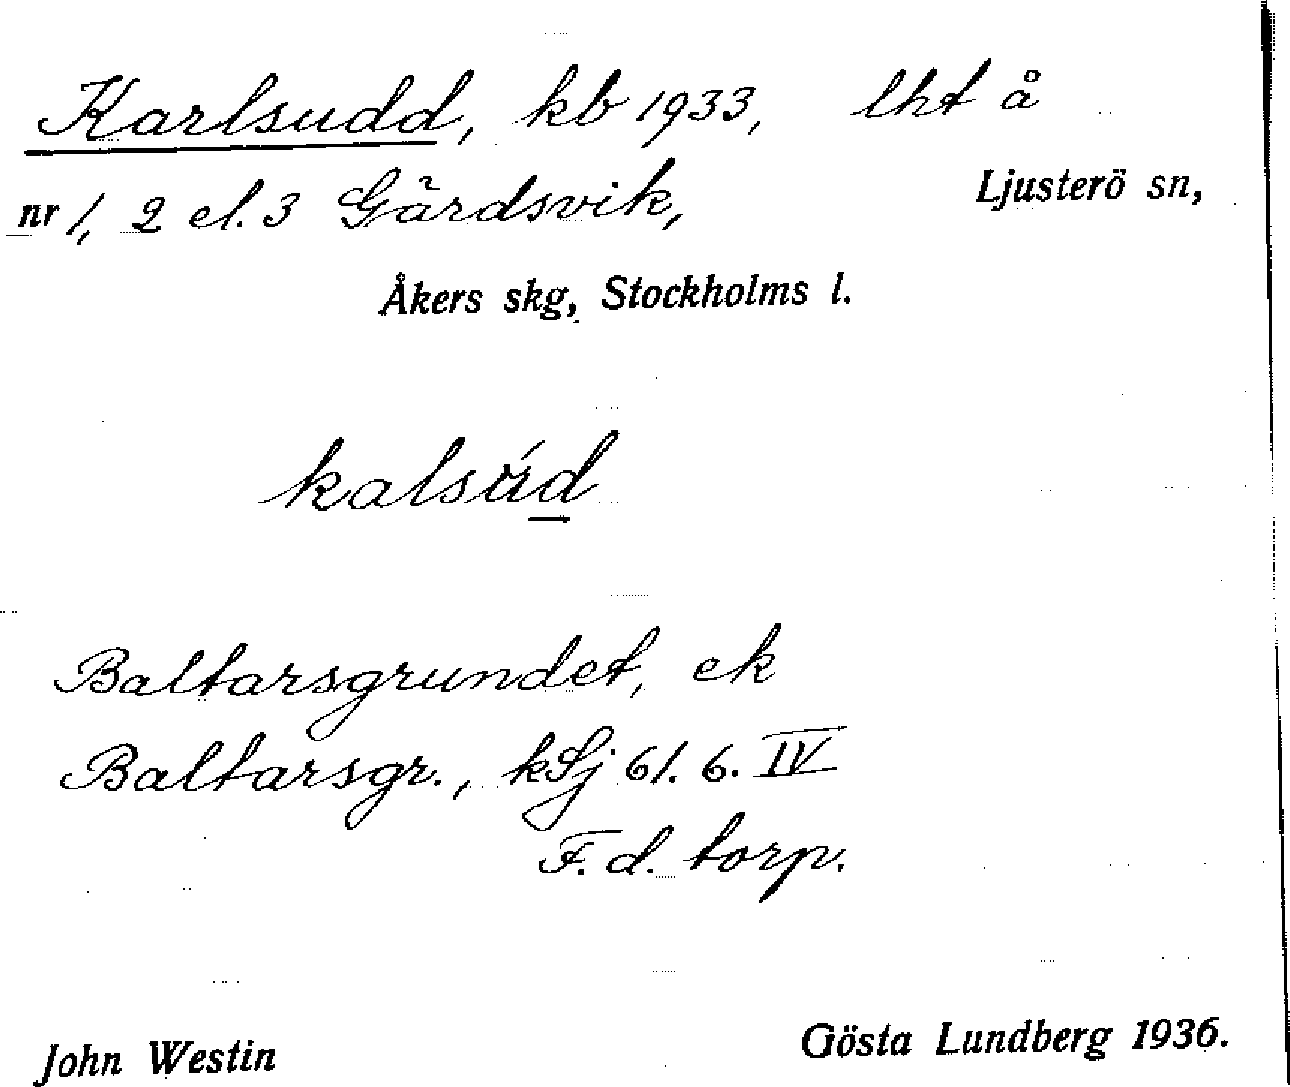 Karlsudd, kb 1933, lht å
nr 1, 2 el. 3 Gärdsvik, Ljusterö sn,
Åkers skg, Stockholms l.
kalsúd
Baltarsgrundet, ek
Baltarsgr., kSj 61. 6. IV
F. d. torp.
John Westin Gösta Lundberg 1936.